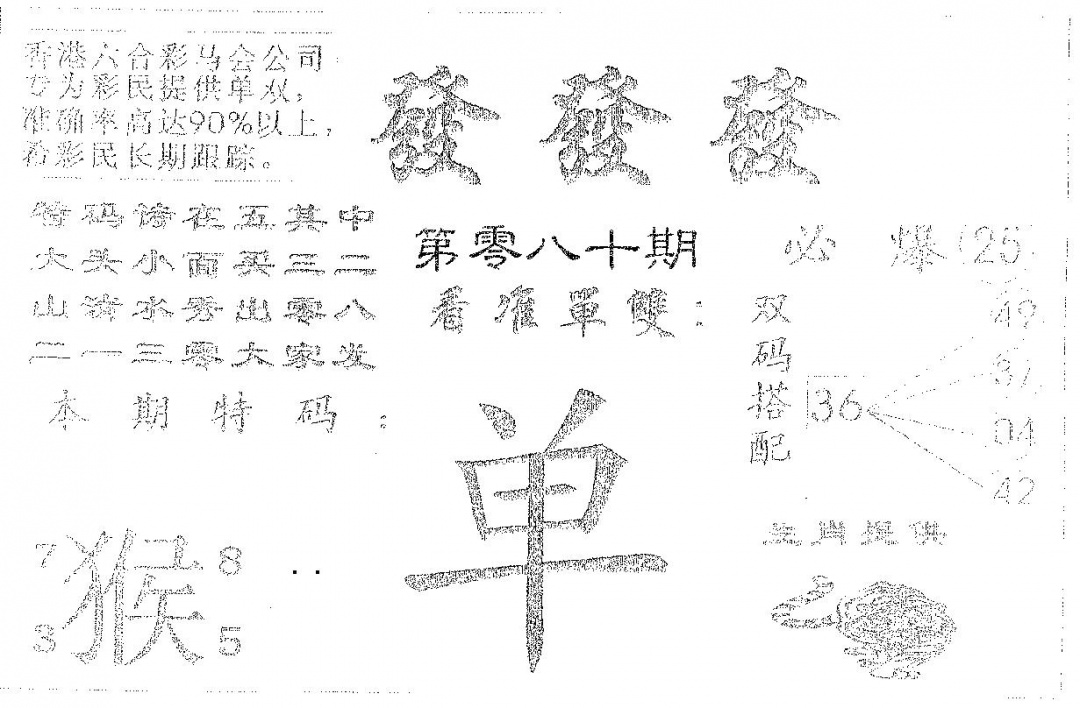 香港六合彩马会公司
专为彩民提供单双，
准确率高达90%以上，
希彩民长期跟踪。
發 發 發
特码诗在五其中
大头小面买三二
山清水秀出零八
二一三零大家发
本期特码：
7 8
猴
3 5
第零八十期
看准單雙：
单
必爆（25）
双码搭配
36
49
37
04
42
生肖提供